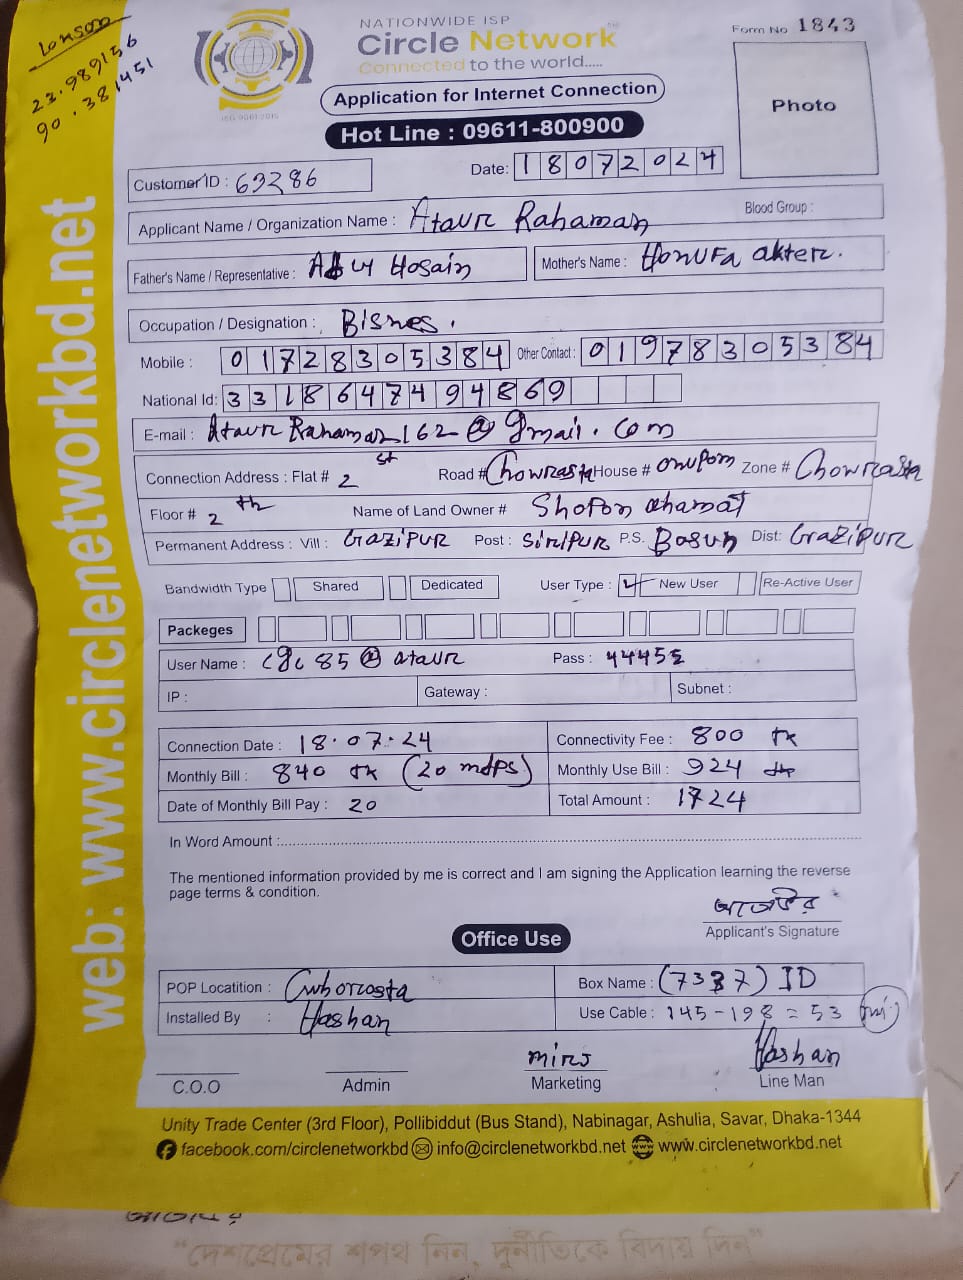 23.989156
90.381451
NATIONWIDE ISP
Circle Network
Connected to the world.....
ISO 9001:2015
Form No 1843
Application for Internet Connection
Hot Line : 09611-800900
Photo
Customer ID : 63286
Date: 18072024
Applicant Name / Organization Name : Ataur Rahaman
Blood Group :
Father's Name / Representative : Abu Hosain
Mother's Name : Honufa akter.
Occupation / Designation : Bisnes.
Mobile : 01728305384 Other Contact : 01978305384
National Id: 3318647494869
E-mail : Ataur Rahaman162@gmail.com
Connection Address : Flat # 2st Road # Chowrasta House # onupom Zone # Chowrasta
Floor # 2th Name of Land Owner # Shopon ahamat
Permanent Address : Vill : Gazipur Post : Siripur P.S. Basun Dist: Grazipur
Bandwidth Type Shared Dedicated User Type : New User Re-Active User
Packeges
User Name : cgc85@ataur Pass : 44455
IP : Gateway : Subnet :
Connection Date : 18.07.24 Connectivity Fee : 800 tk
Monthly Bill : 840 tk (20 mdps) Monthly Use Bill : 924
Date of Monthly Bill Pay : 20 Total Amount : 1724
In Word Amount :
The mentioned information provided by me is correct and I am signing the Application learning the reverse
page terms & condition.
Applicant's Signature
Office Use
POP Locatition : Cwhorcosta Box Name : (7337) ID
Installed By : Hashan Use Cable : 145-198=53
Hashan
C.O.O Admin Marketing Line Man
Unity Trade Center (3rd Floor), Pollibiddut (Bus Stand), Nabinagar, Ashulia, Savar, Dhaka-1344
facebook.com/circlenetworkbd info@circlenetworkbd.net www.circlenetworkbd.net
web: www.circlenetworkbd.net
"দেশপ্রেমের শপথ নিন, দুর্নীতিকে বিদায় দিন"